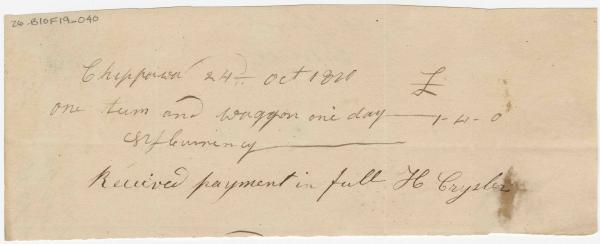 26-B10F19-040
Chippawa 24th Oct 1820 £
one team and waggon one day — 1-4-0
Currency —
Received payment in full H Crysler